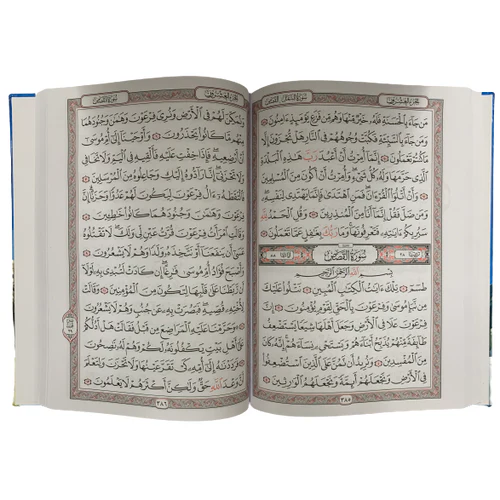 الجزء العشرون
سورة النمل، القصص
مَن جَآءَ بِٱلْحَسَنَةِ فَلَهُۥ خَيْرٌ مِّنْهَا وَهُم مِّن فَزَعٍ يَوْمَئِذٍ ءَامِنُونَ
وَمَن جَآءَ بِٱلسَّيِّئَةِ فَكُبَّتْ وُجُوهُهُمْ فِى ٱلنَّارِ هَلْ تُجْزَوْنَ إِلَّا
مَا كُنتُمْ تَعْمَلُونَ إِنَّمَآ أُمِرْتُ أَنْ أَعْبُدَ رَبَّ هَٰذِهِ ٱلْبَلْدَةِ
ٱلَّذِى حَرَّمَهَا وَلَهُۥ كُلُّ شَىْءٍ وَأُمِرْتُ أَنْ أَكُونَ مِنَ ٱلْمُسْلِمِينَ
وَأَنْ أَتْلُوَا۟ ٱلْقُرْءَانَ فَمَنِ ٱهْتَدَىٰ فَإِنَّمَا يَهْتَدِى لِنَفْسِهِۦ
وَمَن ضَلَّ فَقُلْ إِنَّمَآ أَنَا۠ مِنَ ٱلْمُنذِرِينَ وَقُلِ ٱلْحَمْدُ لِلَّهِ
سَيُرِيكُمْ ءَايَٰتِهِۦ فَتَعْرِفُونَهَا وَمَا رَبُّكَ بِغَٰفِلٍ عَمَّا تَعْمَلُونَ
سُورَةُ القَصَصِ
بِسْمِ ٱللَّهِ ٱلرَّحْمَٰنِ ٱلرَّحِيمِ
طسٓمٓ تِلْكَ ءَايَٰتُ ٱلْكِتَٰبِ ٱلْمُبِينِ نَتْلُوا۟ عَلَيْكَ
مِن نَّبَإِ مُوسَىٰ وَفِرْعَوْنَ بِٱلْحَقِّ لِقَوْمٍ يُؤْمِنُونَ إِنَّ
فِرْعَوْنَ عَلَا فِى ٱلْأَرْضِ وَجَعَلَ أَهْلَهَا شِيَعًا يَسْتَضْعِفُ
طَآئِفَةً مِّنْهُمْ يُذَبِّحُ أَبْنَآءَهُمْ وَيَسْتَحْىِۦ نِسَآءَهُمْ إِنَّهُۥ كَانَ
مِنَ ٱلْمُفْسِدِينَ وَنُرِيدُ أَن نَّمُنَّ عَلَى ٱلَّذِينَ ٱسْتُضْعِفُوا۟
فِى ٱلْأَرْضِ وَنَجْعَلَهُمْ أَئِمَّةً وَنَجْعَلَهُمُ ٱلْوَٰرِثِينَ
٣٨٥
الجزء العشرون
سورة القصص
وَنُمَكِّنَ لَهُمْ فِى ٱلْأَرْضِ وَنُرِىَ فِرْعَوْنَ وَهَٰمَٰنَ وَجُنُودَهُمَا
مِنْهُم مَّا كَانُوا۟ يَحْذَرُونَ وَأَوْحَيْنَآ إِلَىٰٓ أُمِّ مُوسَىٰٓ
أَنْ أَرْضِعِيهِ فَإِذَا خِفْتِ عَلَيْهِ فَأَلْقِيهِ فِى ٱلْيَمِّ وَلَا تَخَافِى
وَلَا تَحْزَنِىٓ إِنَّا رَآدُّوهُ إِلَيْكِ وَجَاعِلُوهُ مِنَ ٱلْمُرْسَلِينَ
فَٱلْتَقَطَهُۥٓ ءَالُ فِرْعَوْنَ لِيَكُونَ لَهُمْ عَدُوًّا وَحَزَنًا إِنَّ
فِرْعَوْنَ وَهَٰمَٰنَ وَجُنُودَهُمَا كَانُوا۟ خَٰطِـِٔينَ
وَقَالَتِ ٱمْرَأَتُ فِرْعَوْنَ قُرَّتُ عَيْنٍ لِّى وَلَكَ لَا تَقْتُلُوهُ
عَسَىٰٓ أَن يَنفَعَنَآ أَوْ نَتَّخِذَهُۥ وَلَدًا وَهُمْ لَا يَشْعُرُونَ
وَأَصْبَحَ فُؤَادُ أُمِّ مُوسَىٰ فَٰرِغًا إِن كَادَتْ لَتُبْدِى بِهِۦ
لَوْلَآ أَن رَّبَطْنَا عَلَىٰ قَلْبِهَا لِتَكُونَ مِنَ ٱلْمُؤْمِنِينَ وَقَالَتْ
لِأُخْتِهِۦ قُصِّيهِ فَبَصُرَتْ بِهِۦ عَن جُنُبٍ وَهُمْ لَا يَشْعُرُونَ
وَحَرَّمْنَا عَلَيْهِ ٱلْمَرَاضِعَ مِن قَبْلُ فَقَالَتْ هَلْ أَدُلُّكُمْ
عَلَىٰٓ أَهْلِ بَيْتٍ يَكْفُلُونَهُۥ لَكُمْ وَهُمْ لَهُۥ نَٰصِحُونَ
فَرَدَدْنَٰهُ إِلَىٰٓ أُمِّهِۦ كَىْ تَقَرَّ عَيْنُهَا وَلَا تَحْزَنَ وَلِتَعْلَمَ
أَنَّ وَعْدَ ٱللَّهِ حَقٌّ وَلَٰكِنَّ أَكْثَرَهُمْ لَا يَعْلَمُونَ
٣٨٦